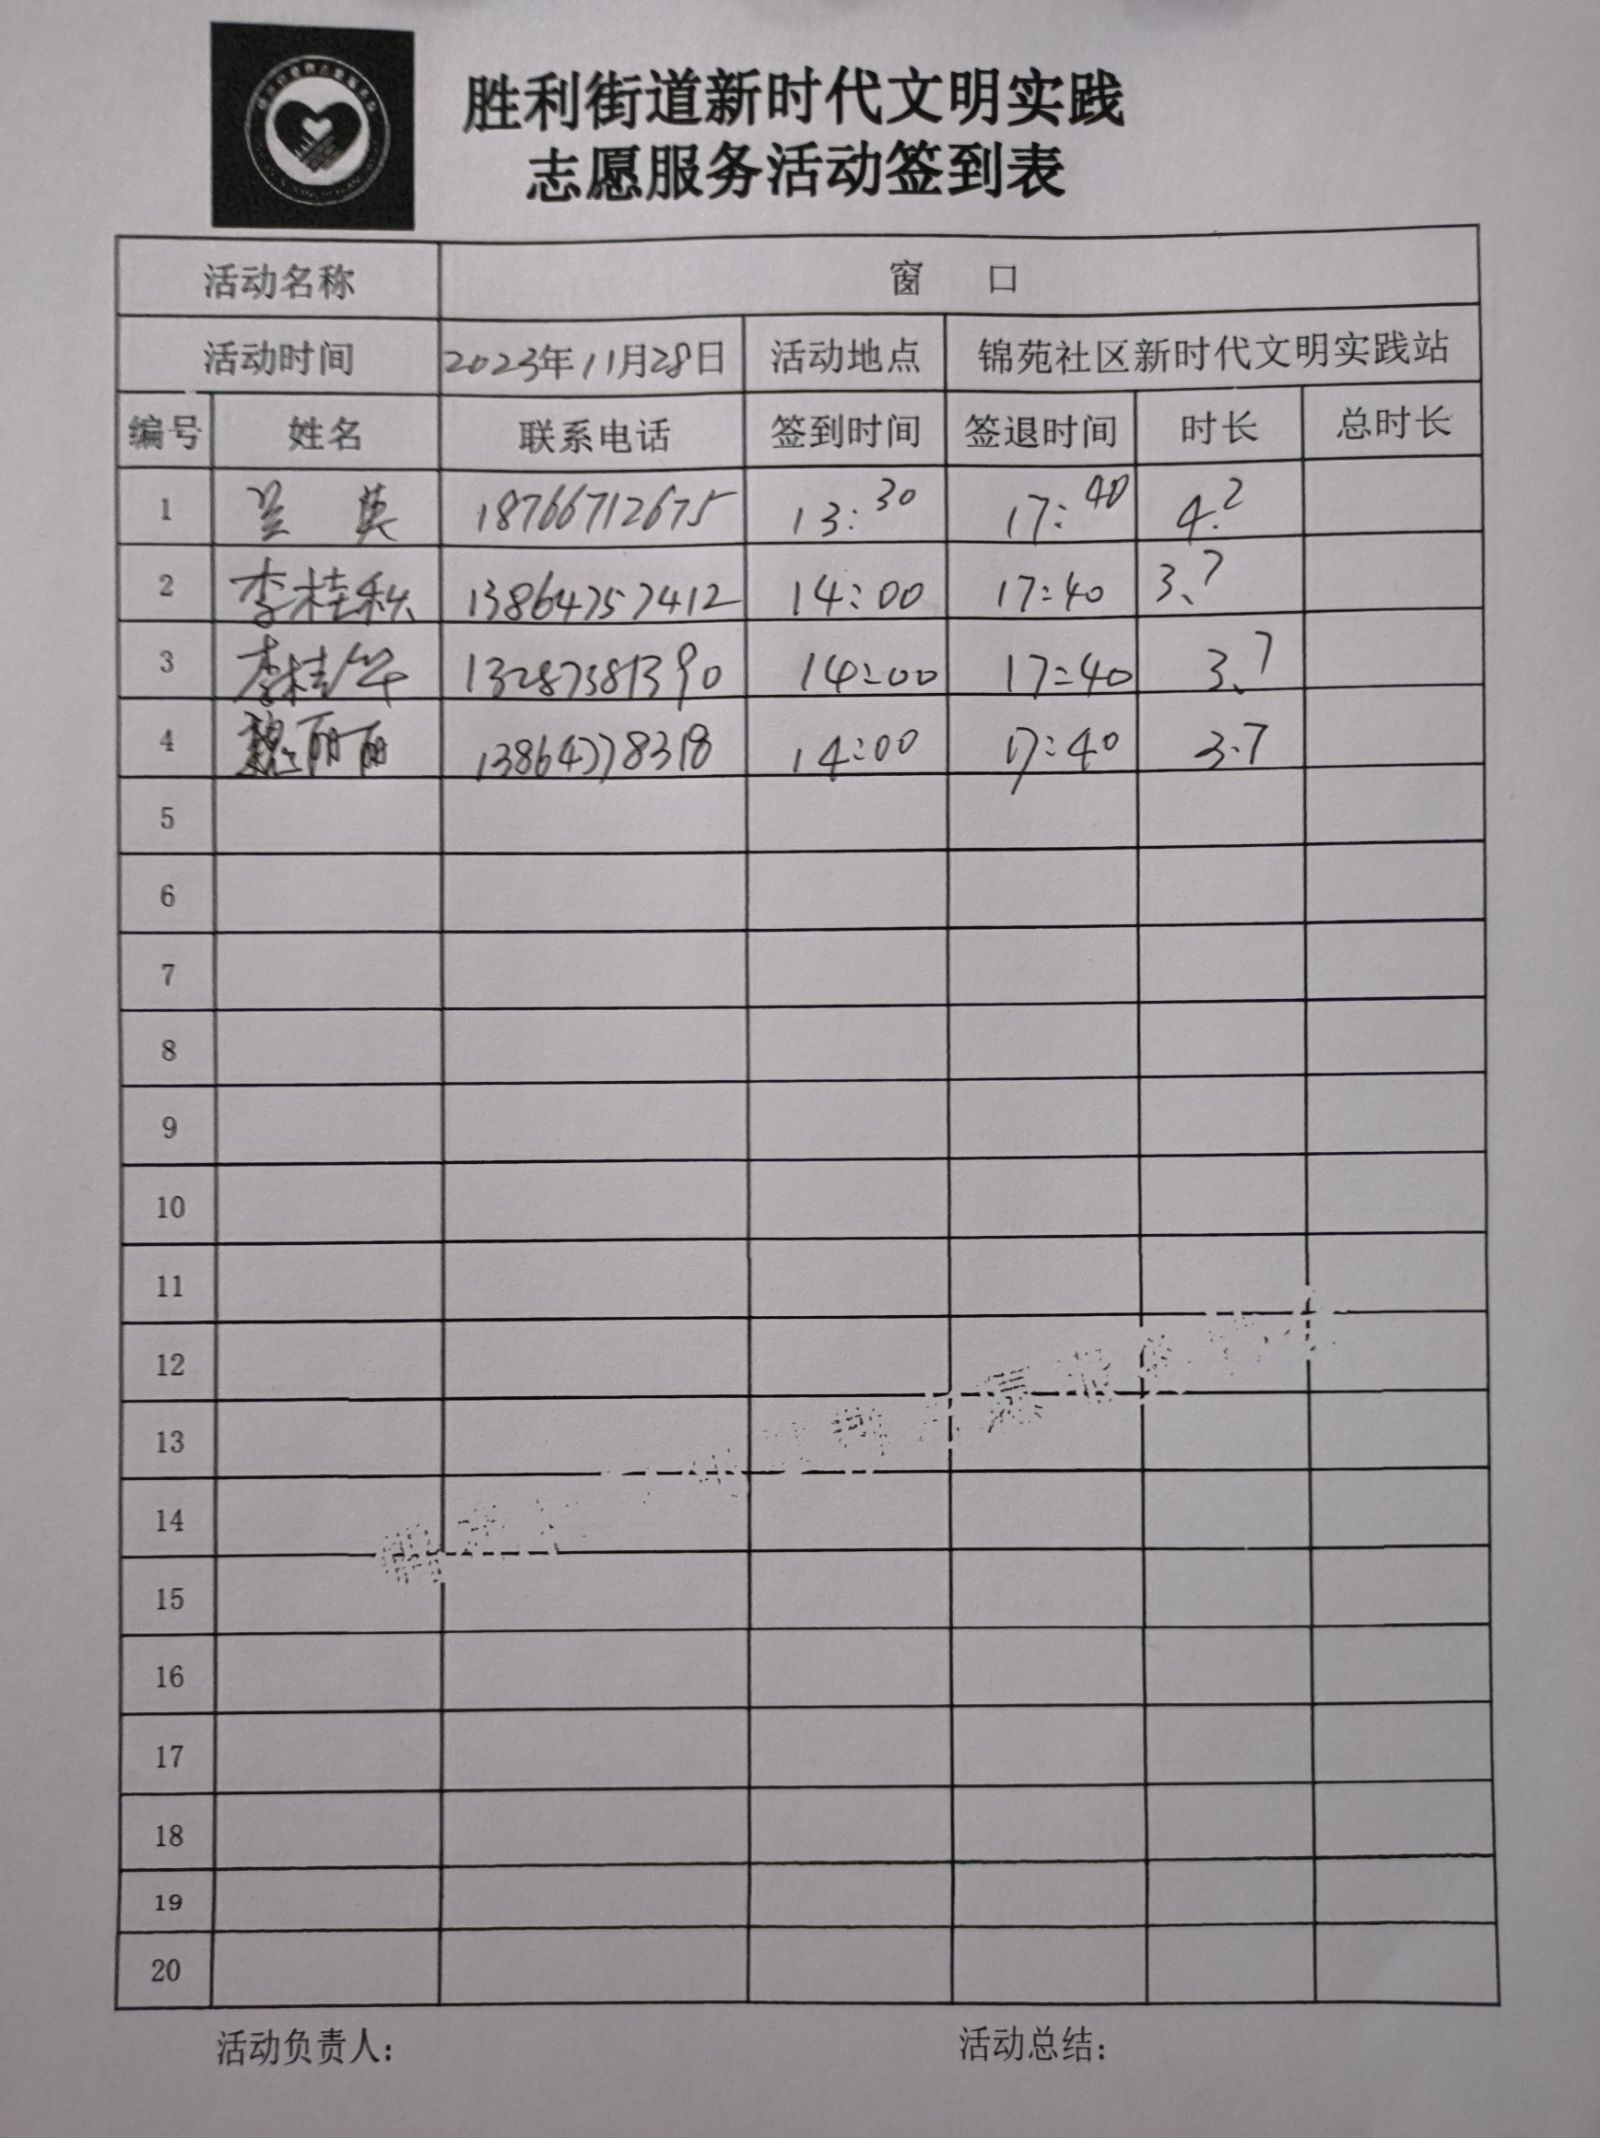 胜利街道新时代文明实践
志愿服务活动签到表
活动名称 窗 口
活动时间 2023年11月28日 活动地点 锦苑社区新时代文明实践站
编号 姓名 联系电话 签到时间 签退时间 时长 总时长
1 英 18766712675 13:30 17:40 4.2
2 李桂秋 13864757412 14:00 17:40 3.7
3 李桂华 13287381390 14:00 17:40 3.7
4 魏丽丽 13864778318 14:00 17:40 3.7
5
6
7
8
9
10
11
12
13
14
15
16
17
18
19
20
活动负责人: 活动总结: